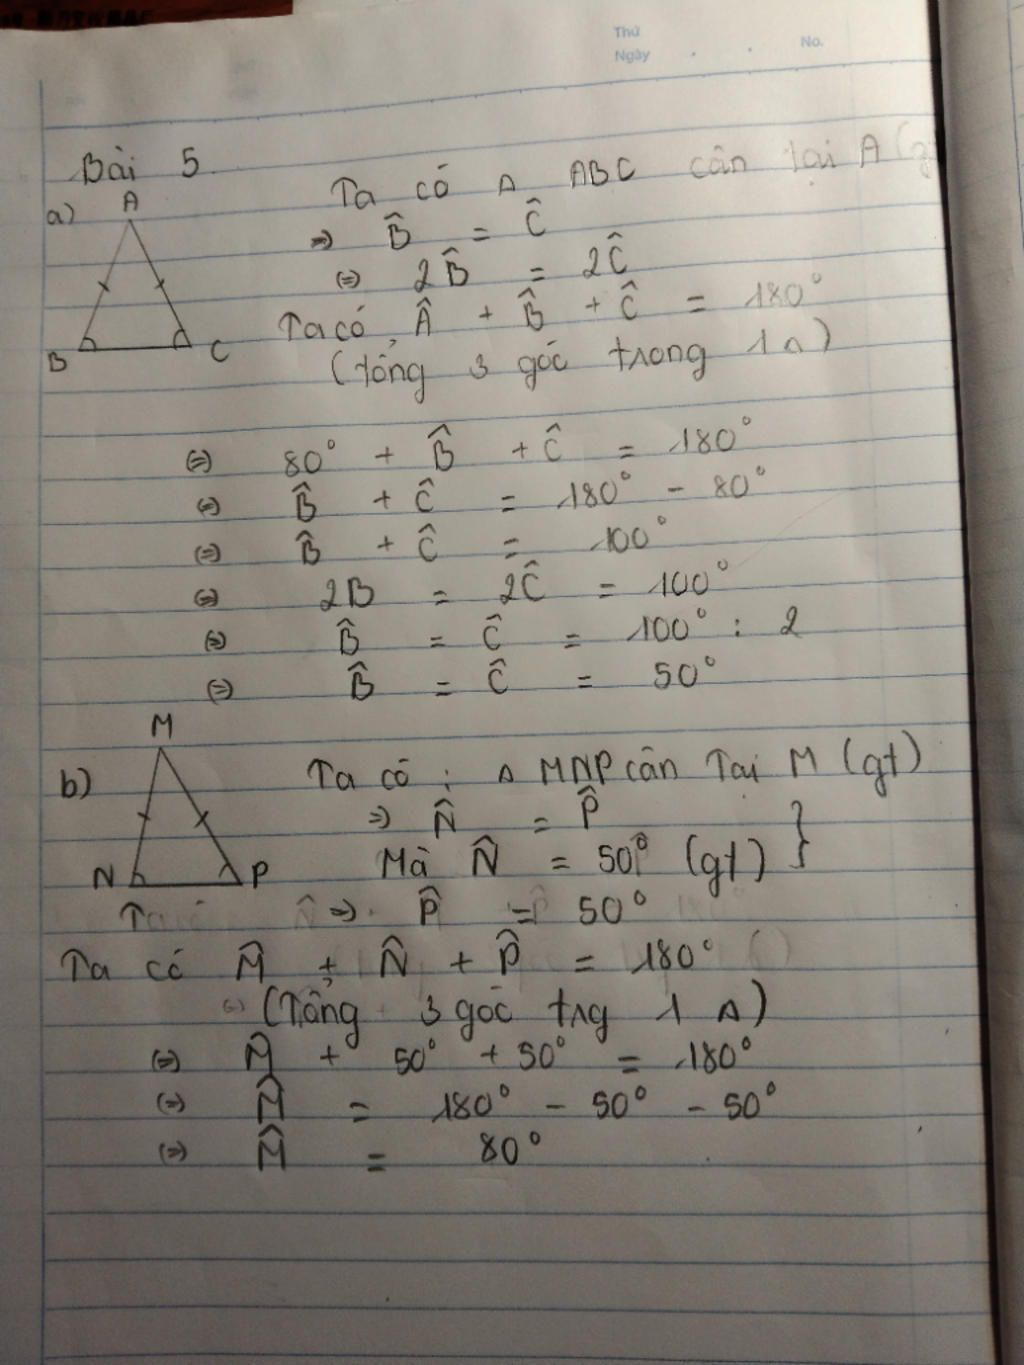 Thứ
Ngày . . No.
Bài 5.
a) A
B C
Ta có Δ ABC cân tại A (g
=> B̂ = Ĉ
(=) 2B̂ = 2Ĉ
Ta có, Â + B̂ + Ĉ = 180°
(tổng 3 góc trong 1 Δ)
(=) 80° + B̂ + Ĉ = 180°
(=) B̂ + Ĉ = 180° - 80°
(=) B̂ + Ĉ = 100°
(=) 2B = 2Ĉ = 100°
(=) B̂ = Ĉ = 100° : 2
(=) B̂ = Ĉ = 50°
b) M
N P
Ta có : Δ MNP cân Tại M (gt)
=> N̂ = P̂
Mà N̂ = 50° (gt) }
=> P̂ = 50°
Ta có M̂ + N̂ + P̂ = 180°
(Tổng 3 góc trg 1 Δ)
(=) M̂ + 50° + 50° = 180°
(=) M̂ = 180° - 50° - 50°
(=) M̂ = 80°